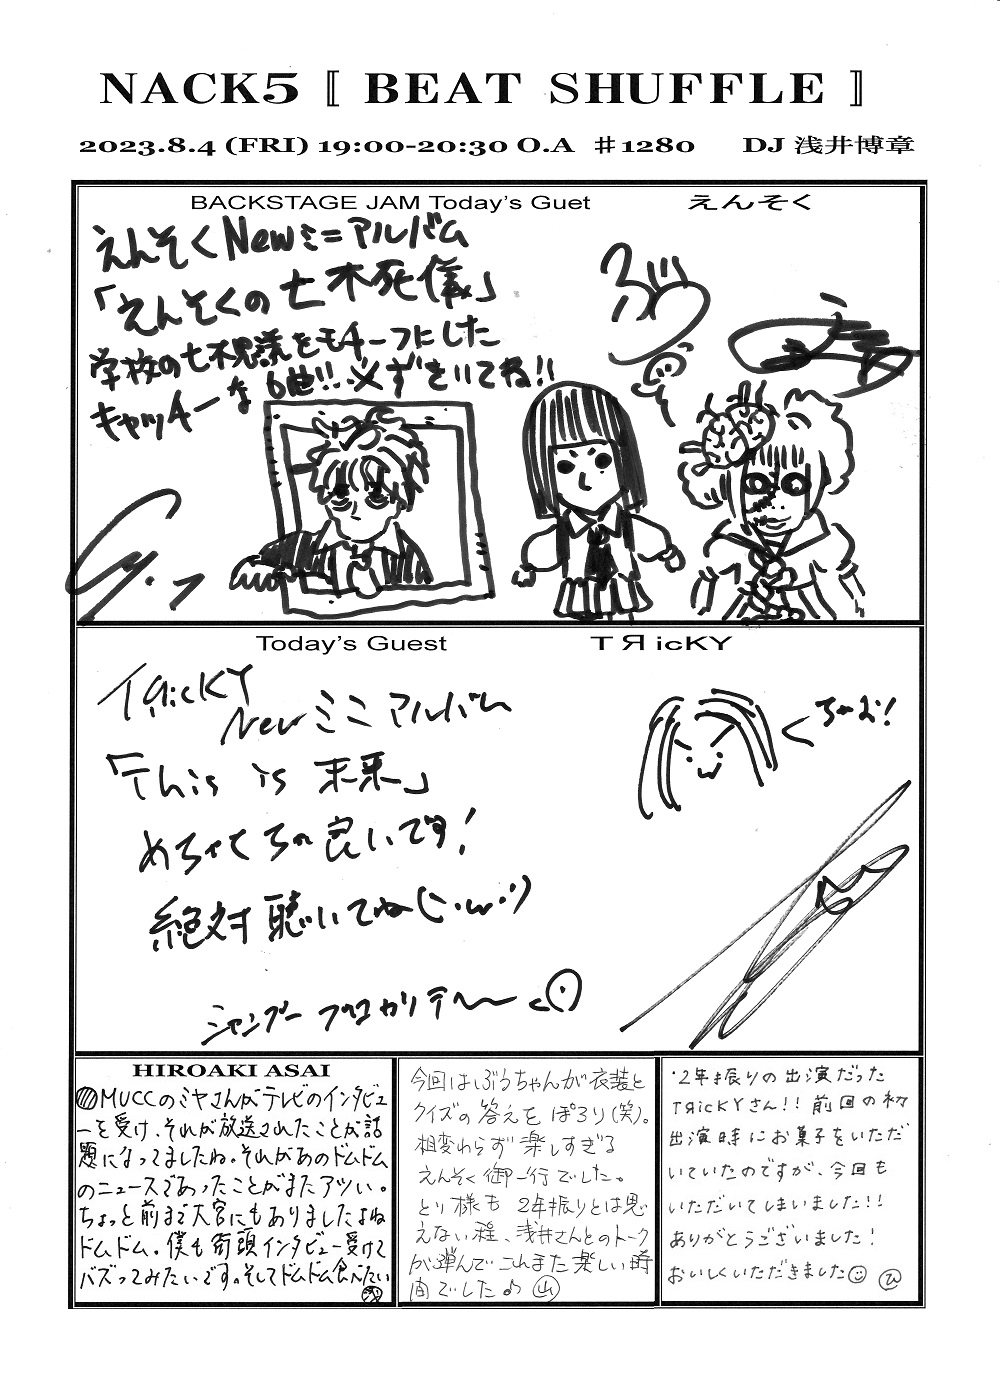 NACK5 〚 BEAT SHUFFLE 〛
2023.8.4 (FRI) 19:00-20:30 O.A ♯1280 DJ 浅井博章
BACKSTAGE JAM Today's Guet えんそく
えんそくNewミニアルバム
「えんそくの七不死儀」
学校の七不思議をモチーフにした
キャッチーな6曲!!必ずきいてね!!
ぶう
Today's Guest TЯicKY
TЯicKY
New ミニアルバム
「This is 未来」
めちゃくちゃ良いです!
絶対聴いてね(・ω・)
シャンプープロカリテ〜
ちゃお!
HIROAKI ASAI
MUCCのミヤさんがテレビのインタビュ
ーを受け、それが放送されたことが話
題になってましたね。それがあのドムドム
のニュースであったことがまたアツい。
ちょっと前まで大宮にもありましたよね
ドムドム。僕も街頭インタビュー受けて
バズってみたいです。そしてドムドム食べたい
今回はぶうちゃんが衣装と
クイズの答えをぽろり(笑)。
相変わらず楽しすぎる
えんそく御一行でした。
とり様も2年振りとは思
えない程、浅井さんとのトーク
が弾んでこれまた楽しい時
間でした♪ 山
・2年振りの出演だった
TЯicKYさん!! 前回の初
出演時にお菓子をいただ
いていたのですが、今回も
いただいてしまいました!!
ありがとうございました!
おいしくいただきました☺ ひ